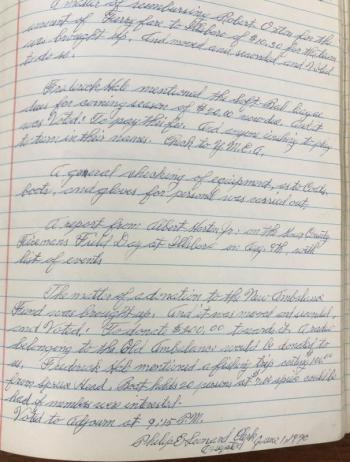 A matter of reimbursing Robert Oxton for the
amount of Ferry fare to Islesboro of $10.50 for the team
was brought up. And moved and seconded and Voted
to do so.
Frederick Hil mentioned the Soft-Ball league
dues for coming season of $20.00 now due. and it
was Voted: To pay this fee. And anyone wishing to play
to turn in their names. Check to Y.M.C.A.
A general checking of equipment, as to Coats,
boots, and gloves for personel was carried out,
A report from: Albert Horton Jr: on the Knox County
Firemens Field Day at Islesboro on Aug. 9th, with
list of events
The matter of a donation to the New Ambulance
Fund was brought up. And it was moved and seconded,
and Voted: To donate $200.00 towards it. A radio
belonging to the Old Ambulance would be donated to
us. Frederick Hil mentioned a fishing trip costing
from Spruce Head. Boat holds 20 persons at apiece could be
had if members were interested.
Voted to adjourn at 9:15 P.M.
Philip E. Leonard Clerk
June 1970